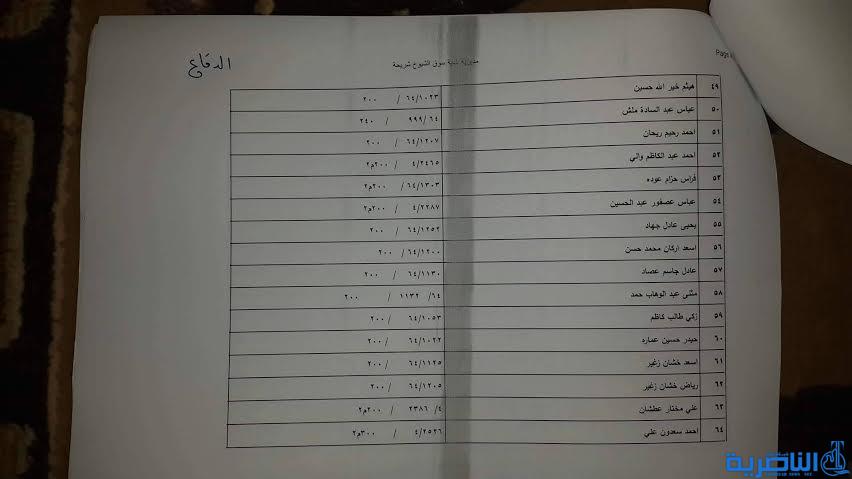 الدفاع
مديرية بلدية سوق الشيوخ شريحة
Page
٤٩ هيثم خير الله حسين ٦٤/١٠٢٣ / ٢٠٠
٥٠ عباس عبد السادة ملش ٩٩٩/٦٤ / ٢٤٠
٥١ احمد رحيم ريحان ٦٤/١٢٠٧ / ٢٠٠
٥٢ احمد عبد الكاظم والي ٤/٢٤٦٥ / ٢٠٠م٢
٥٣ فراس حزام عوده ٦٤/١٣٠٣ / ٢٠٠م٢
٥٤ عباس عصفور عبد الحسين ٤/٢٢٨٧ / ٢٠٠م٢
٥٥ يحيى عادل جهاد ٦٤/١٢٥٢ / ٢٠٠
٥٦ اسعد اركان محمد حسن ٦٤/١٢٠٠ / ٢٠٠
٥٧ عادل جاسم عصاد ٦٤/١١٣٠ / ٢٠٠
٥٨ مثنى عبد الوهاب حمد ٦٤/ ١١٣٢ / ٢٠٠
٥٩ زكي طالب كاظم ٦٤/١٠٥٣ / ٢٠٠
٦٠ حيدر حسين عماره ٦٤/١٠٢٢ / ٢٠٠
٦١ اسعد خشان زغير ٦٤/١١٢٥ / ٢٠٠
٦٢ رياض خشان زغير ٦٤/١٢٠٥ / ٢٠٠
٦٣ علي مختار عطشان ٤/ ٢٣٨٦ / ٢٠٠م٢
٦٤ احمد سعدون علي ٤/٢٥٢٦ / ٣٠٠م٢
الناصرية